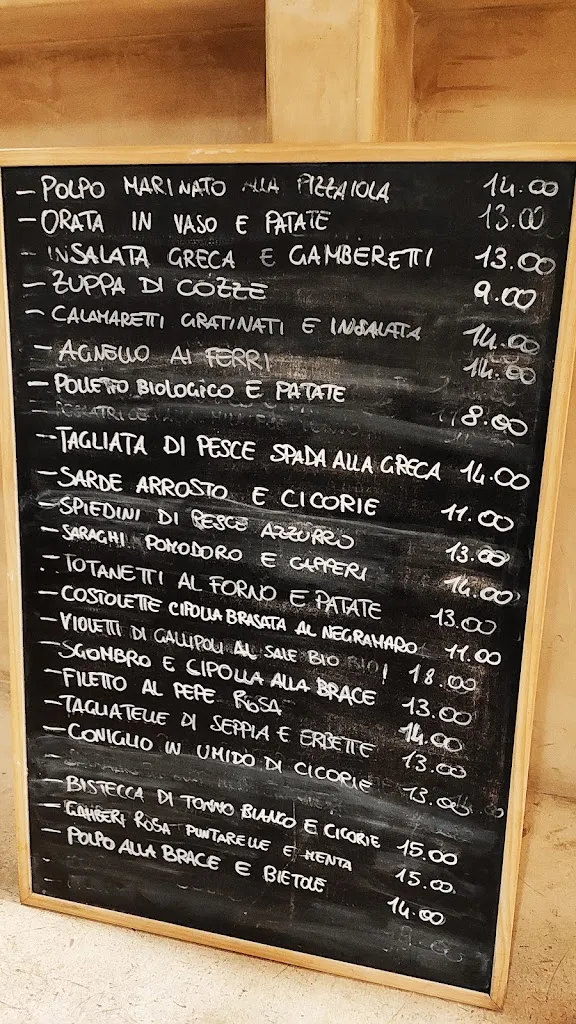 - POLPO MARINATO ALLA PIZZAIOLA 14.00
- ORATA IN VASO E PATATE 13.00
- INSALATA GRECA E GAMBERETTI 13.00
- ZUPPA DI COZZE 9.00
- CALAMARETTI GRATINATI E INSALATA 14.00
- AGNELLO AI FERRI 14.00
- POLLETTO BIOLOGICO E PATATE 8.00
- TAGLIATA DI PESCE SPADA ALLA GRECA 14.00
- SARDE ARROSTO E CICORIE 11.00
- SPIEDINI DI PESCE AZZURRO 13.00
- SARAGHI POMODORO E CAPPERI 14.00
- TOTANETTI AL FORNO E PATATE 13.00
- COSTOLETTE CIPOLLA BRASATA AL NEGRAMARO 11.00
- VIOLETTI DI GALLIPOLI AL SALE BIO BIO! 18.00
- SGOMBRO E CIPOLLA ALLA BRACE 13.00
- FILETTO AL PEPE ROSA 14.00
- TAGLIATELLE DI SEPPIA E ERBETTE 13.00
- CONIGLIO IN UMIDO DI CICORIE 13.00
- BISTECCA DI TONNO BIANCO E CICORIE 15.00
- GAMBERI ROSA PUNTARELLE E MENTA 15.00.
- POLPO ALLA BRACE E BIETOLE 14.00